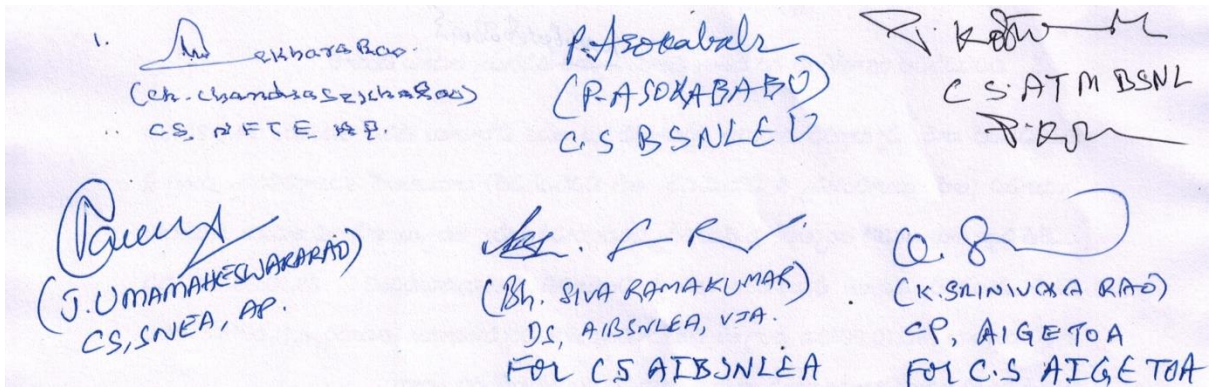 1.
(ch. chandrasekhaRao)
CS. NFTE AP.
P. Asokababu
(P. ASOKABABU)
C.S BSNLEU
C S. ATM BSNL
(J. UMAMAHESWARARAO)
CS, SNEA, AP.
(Bh. SIVA RAMAKUMAR)
DS, AIBSNLEA, VJA.
FOR C S AIBSNLEA
(K. SRINIVASA RAO)
CP AIGETOA
FOR C.S AIGETOA